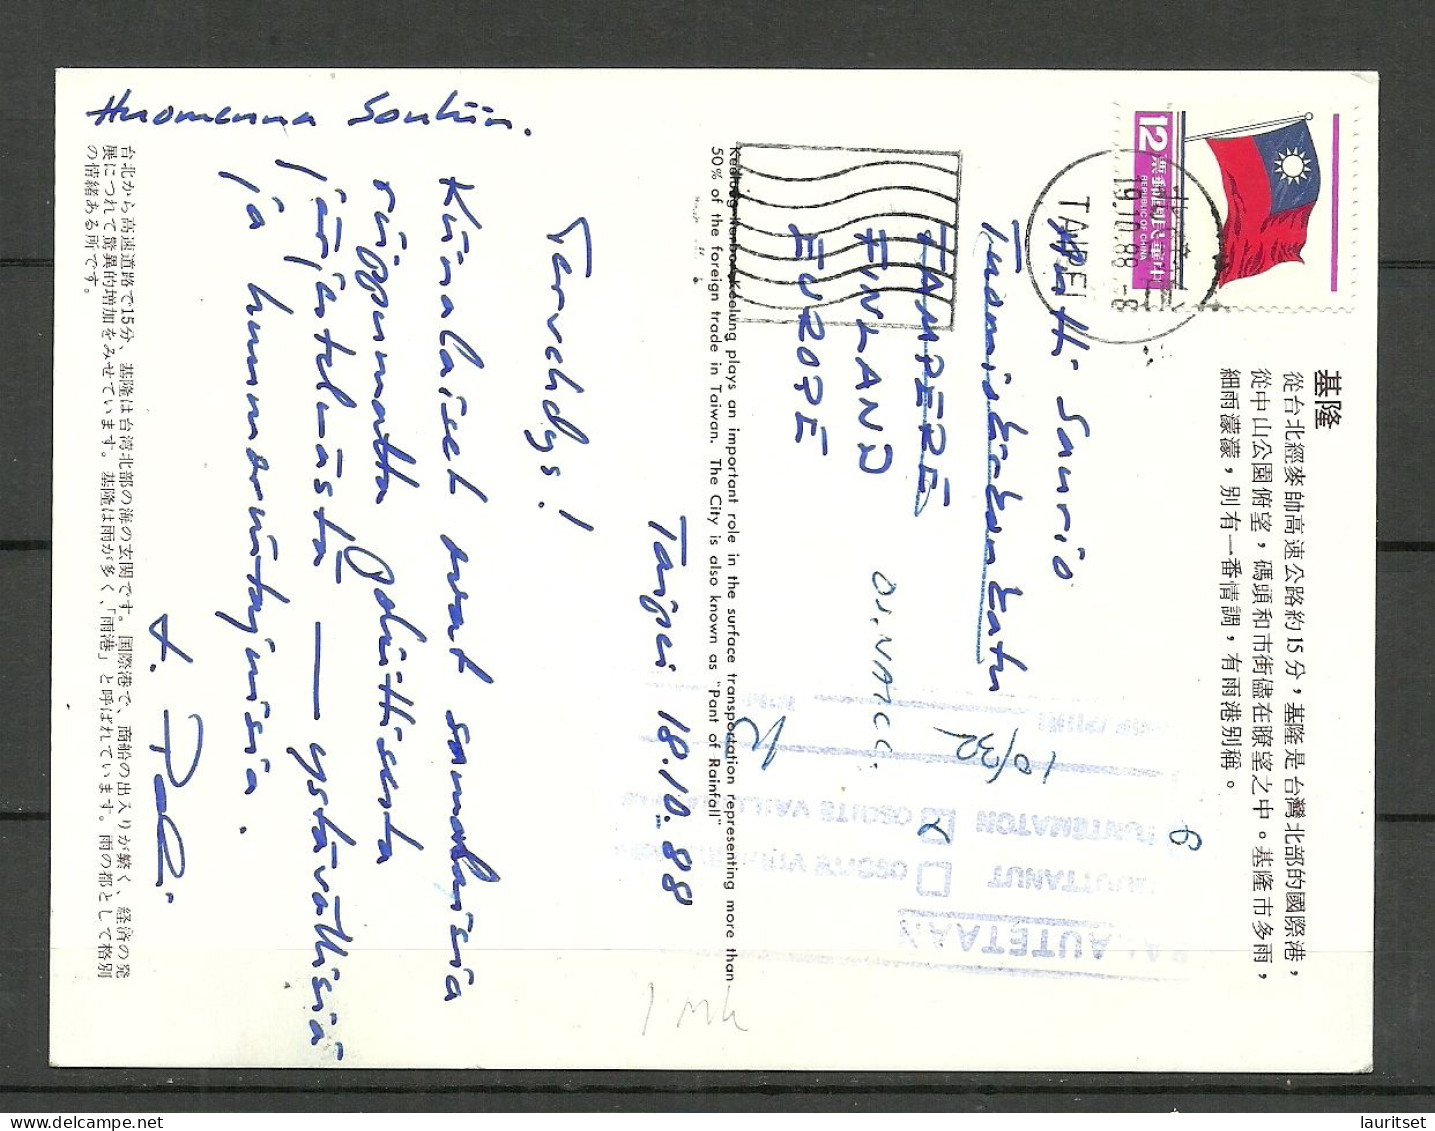 Huomenna Souliin.
Taipei 18.10.88
Tervehdys!
Kiinalaiset ovat samanlaisia
riippumatta poliittisesta
järjestelmästä — ystävällisiä
ja hummeruitajisia.
t.
Matti Saurio
TAMPERE
FINLAND
EUROPE
OS.NACC
10/32
6
1 mk
12
中華民國郵票
REPUBLIC OF CHINA
19.10.88.-8
TAIPEI
基隆
從台北經麥帥高速公路約15分，基隆是台灣北部的國際港，
從中山公園俯望，碼頭和市街儘在瞭望之中。基隆市多雨，
細雨濛濛，別有一番情調，有雨港別稱。
Keelung Harbor, Keelung plays an important role in the surface transportation representing more than
50% of the foreign trade in Taiwan. The City is also known as "Pant of Rainfall"
台北から高速道路で15分、基隆は台湾北部の海の玄関です。国際港で、商船の出入りが繁く、経済の発
展につれて驚異的増加をみせています。基隆は雨が多く、「雨港」と呼ばれています。雨の都として格別
の情緒ある所です。
PALAUTETAAN
MUUTTANUT
OSOITE
TUNTEMATON
OSOITE
lauritset